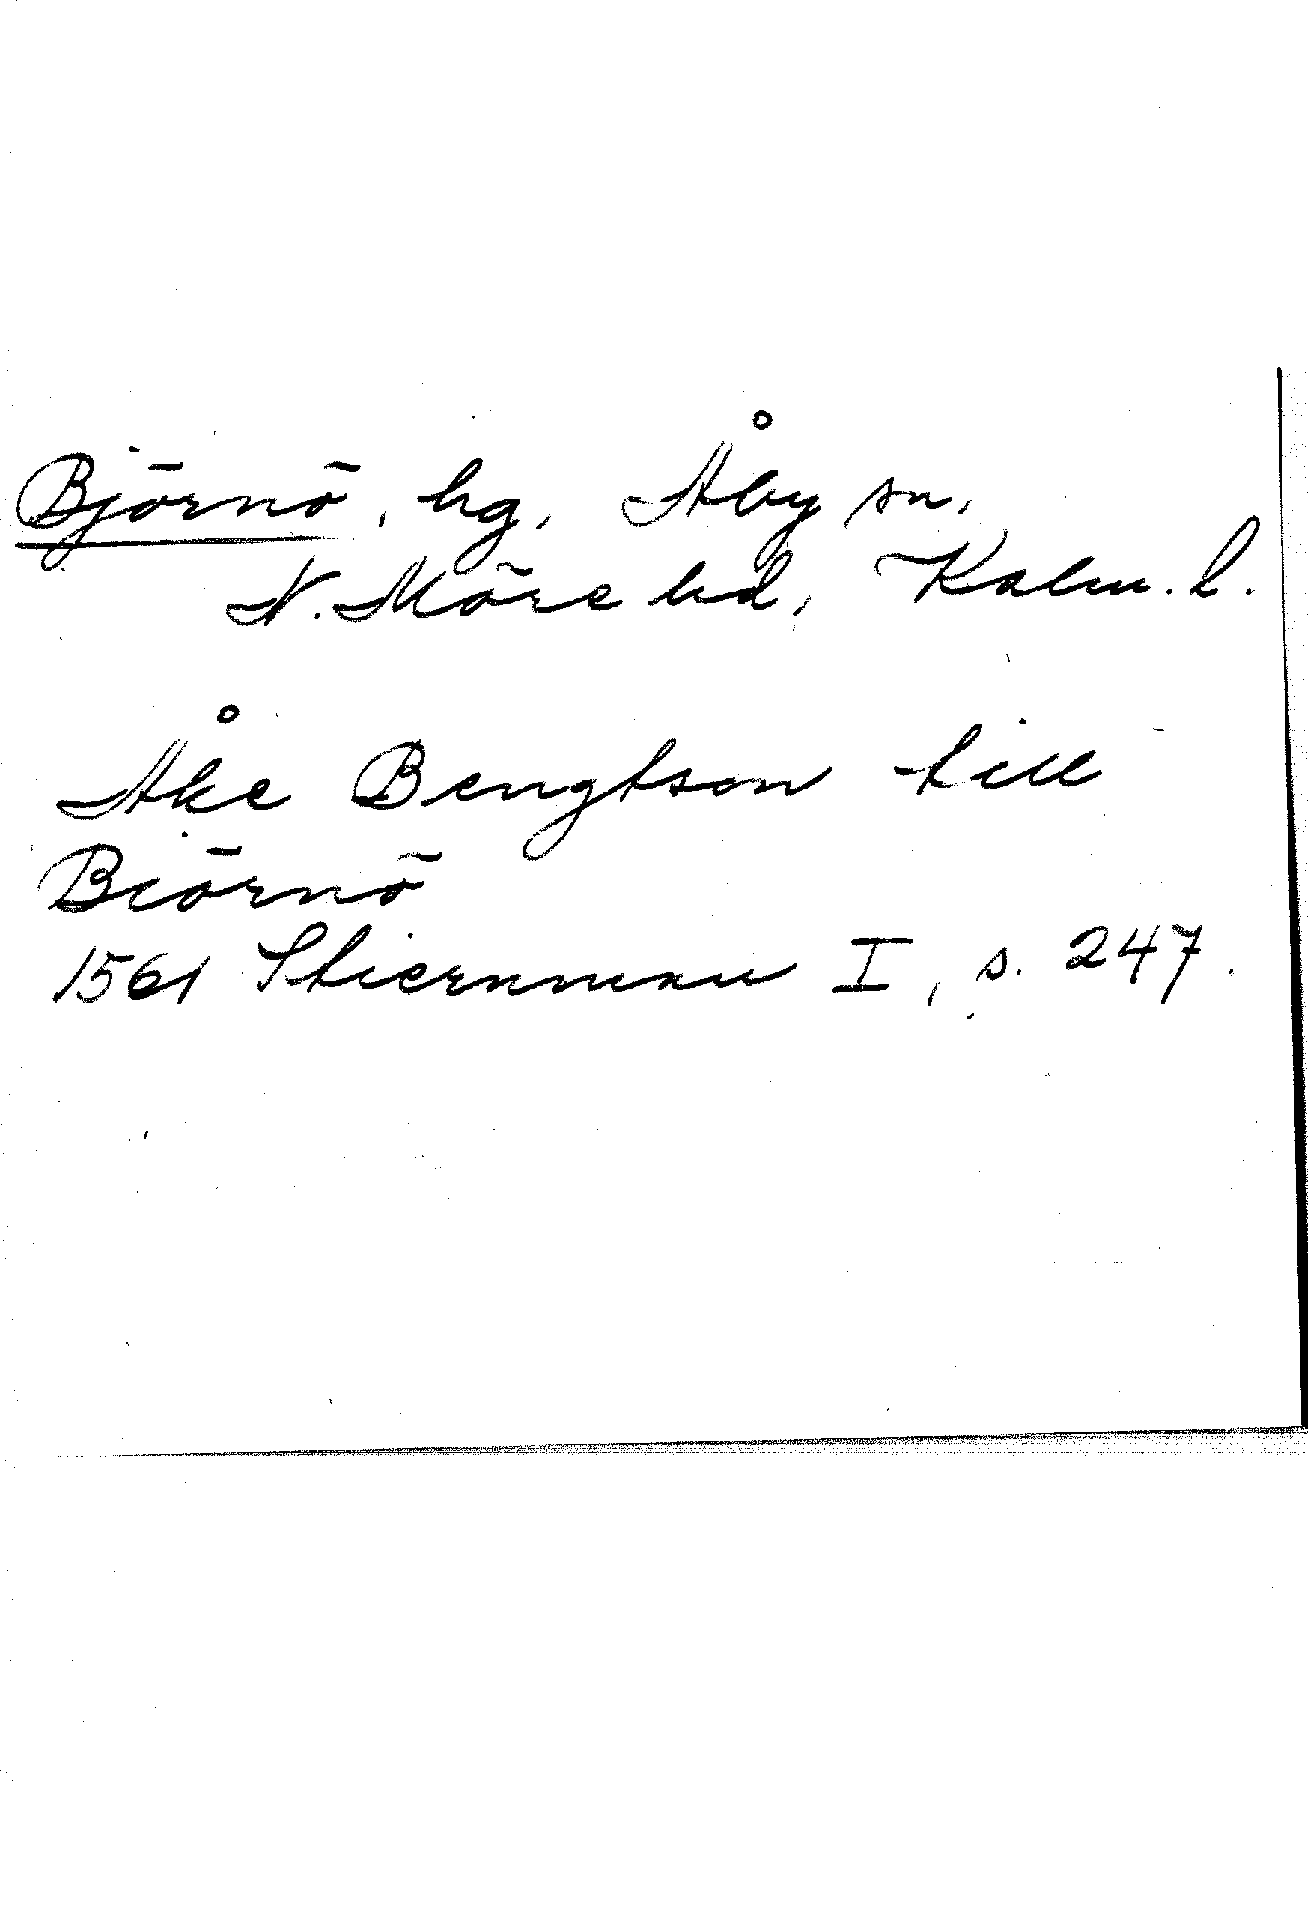 Björnö, hg, Åby sn,
N. Möre hd, Kalm. l.
Åke Bengtson till
Biörnö
1561 Stiernman I, s. 247.